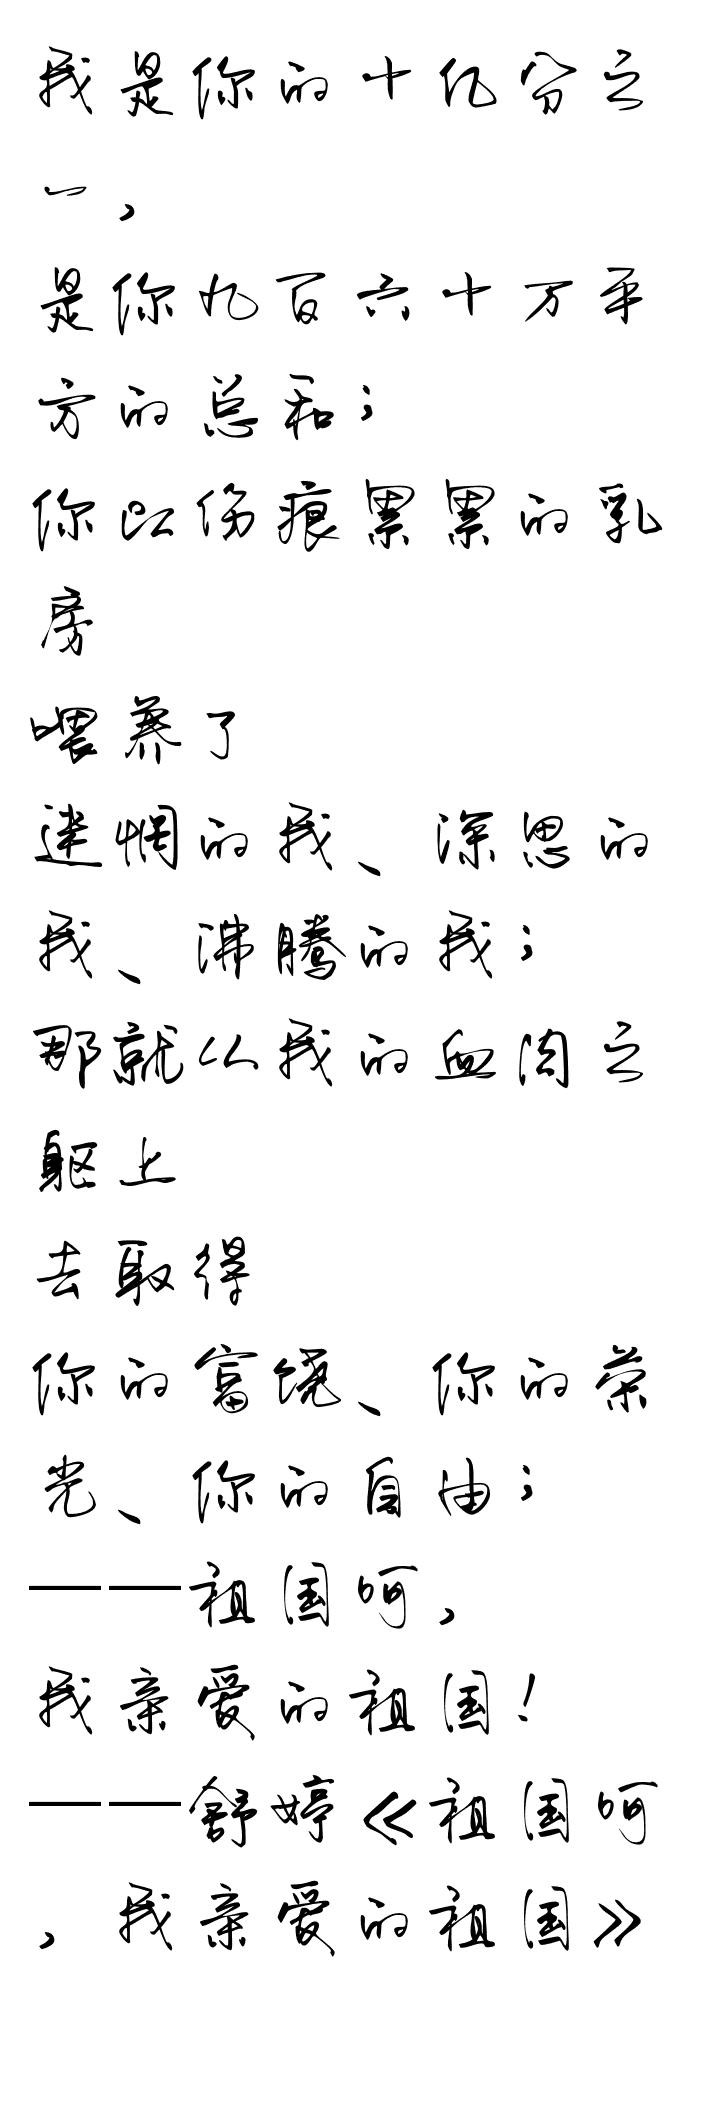 我是你的十亿分之
一，
是你九百六十万平
方的总和；
你以伤痕累累的乳
房
喂养了
迷惘的我、深思的
我、沸腾的我；
那就从我的血肉之
躯上
去取得
你的富饶、你的荣
光、你的自由；
——祖国呵，
我亲爱的祖国！
——舒婷《祖国呵
，我亲爱的祖国》